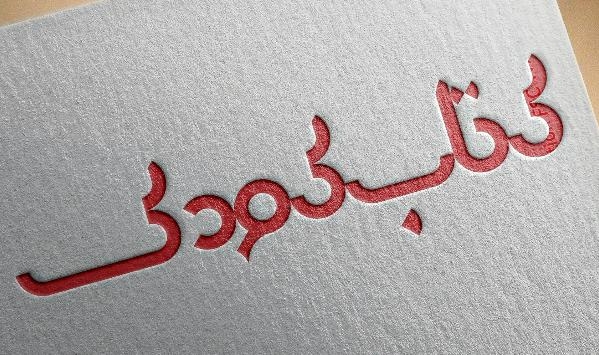 کتاب کودک